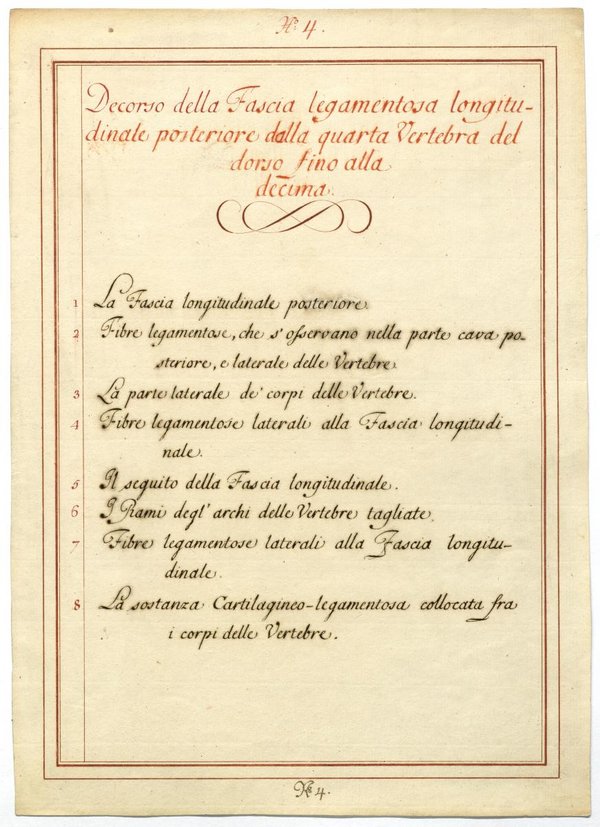 No. 4.
Decorso della Fascia legamentosa longitu-
dinale posteriore dalla quarta Vertebra del
dorso fino alla
decima.
1 La Fascia longitudinale posteriore.
2 Fibre legamentose, che s'osservano nella parte cava po-
steriore, e laterale delle Vertebre.
3 La parte laterale de' corpi delle Vertebre.
4 Fibre legamentose laterali alla Fascia longitudi-
nale.
5 Il seguito della Fascia longitudinale.
6 I Rami degl' archi delle Vertebre tagliate.
7 Fibre legamentose laterali alla Fascia longitu-
dinale.
8 La sostanza Cartilagineo-legamentosa collocata fra
i corpi delle Vertebre.
No. 4.